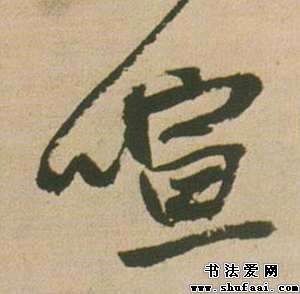 喧
书法爱网
www.shufaai.com